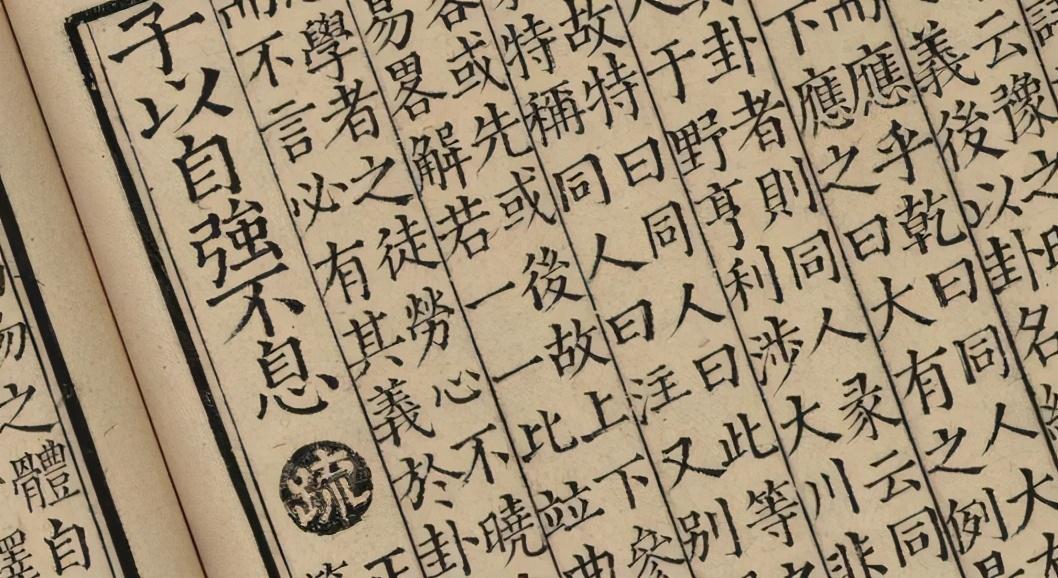 云豫之
義後以卦名
而應乎乾曰同人大
下應之曰大有之例
卦者則同人彖云同
于野亨利涉大川非
故特曰同人曰此等
特稱同人曰注又別
客或先或後故上下參
易畧解若一一比並曲
學者之徒勞心不曉
而不言必有其義於卦
子以自強不息疏
之體自